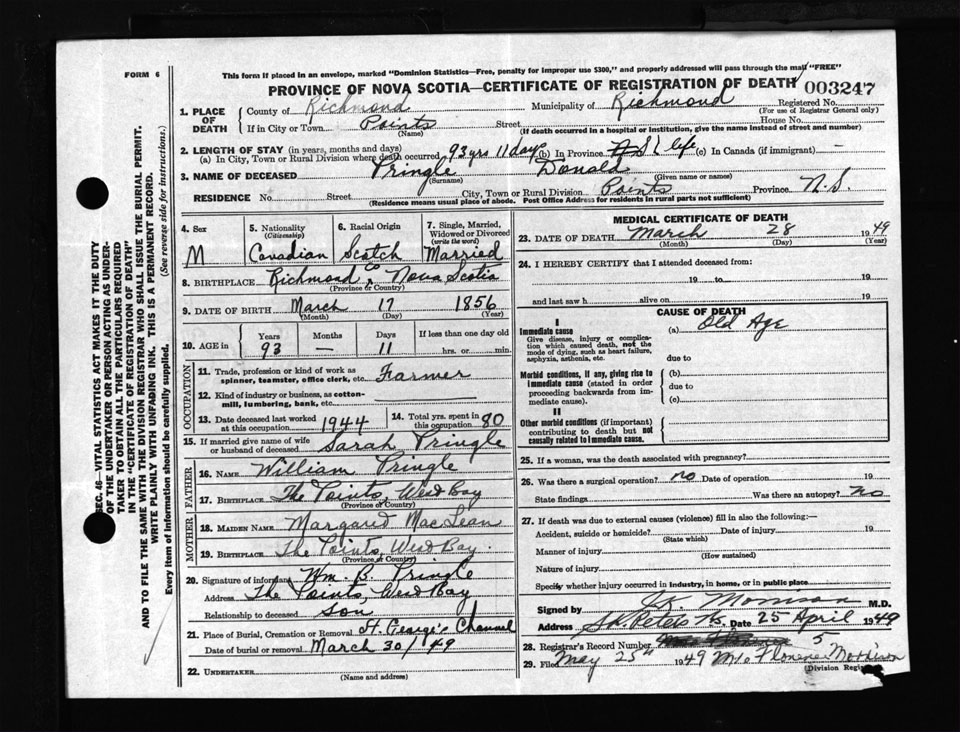 FORM 6
This form if placed in an envelope, marked "Dominion Statistics—Free, penalty for improper use $300," and properly addressed will pass through the mail "FREE"
PROVINCE OF NOVA SCOTIA—CERTIFICATE OF REGISTRATION OF DEATH 003247
1. PLACE OF DEATH
County of Richmond Municipality of Richmond Registered No.
(For use of Registrar General only)
If in City or Town Points Street House No.
(Name) (If death occurred in a hospital or institution, give the name instead of street and number)
2. LENGTH OF STAY (in years, months and days)
(a) In City, Town or Rural Division where death occurred 93 yrs 11 days (b) In Province life (c) In Canada (if immigrant) —
3. NAME OF DECEASED Pringle Donald
(Surname) (Given name or names)
RESIDENCE No. Street City, Town or Rural Division Points Province N.S.
(Residence means usual place of abode. Post Office Address for residents in rural parts not sufficient)
4. Sex
M
5. Nationality
(Citizenship)
Canadian
6. Racial Origin
Scotch
7. Single, Married, Widowed or Divorced
(write the word)
Married
8. BIRTHPLACE Richmond Co, Nova Scotia
(Province or Country)
9. DATE OF BIRTH March 17 1856
(Month) (Day) (Year)
10. AGE IN
Years Months Days If less than one day old
93 — 11 hrs. or min.
OCCUPATION
11. Trade, profession or kind of work as spinner, teamster, office clerk, etc. Farmer
12. Kind of industry or business, as cotton-mill, lumbering, bank, etc.
13. Date deceased last worked at this occupation 1944
14. Total yrs. spent in this occupation 80
15. If married give name of wife or husband of deceased Sarah Pringle
FATHER
16. NAME William Pringle
17. BIRTHPLACE The Points, West Bay
(Province or Country)
MOTHER
18. MAIDEN NAME Margaret MacLean
19. BIRTHPLACE The Points, West Bay.
(Province or Country)
20. Signature of informant Wm. B. Pringle
Address The Points, West Bay
Relationship to deceased Son
21. Place of Burial, Cremation or Removal St. George's Channel
Date of burial or removal March 30/49
22. UNDERTAKER
(Name and address)
MEDICAL CERTIFICATE OF DEATH
23. DATE OF DEATH March 28 1949
(Month) (Day) (Year)
24. I HEREBY CERTIFY that I attended deceased from:
19 to 19
and last saw h alive on 19
CAUSE OF DEATH
I
Immediate cause (a) Old Age
Give disease, injury or complication which caused death, not the mode of dying, such as heart failure, asphyxia, asthenia, etc.
due to
Morbid conditions, if any, giving rise to immediate cause (stated in order proceeding backwards from immediate cause).
(b)
due to
(c)
II
Other morbid conditions (if important) contributing to death but not causally related to immediate cause.
25. If a woman, was the death associated with pregnancy?
26. Was there a surgical operation? no Date of operation 19
State findings Was there an autopsy? no
27. If death was due to external causes (violence) fill in also the following:—
Accident, suicide or homicide? Date of injury 19
(State which)
Manner of injury
(How sustained)
Nature of injury
Specify whether injury occurred in industry, in home, or in public place
Signed by Morrison M.D.
Address St. Peters Date 25 April 1949
28. Registrar's Record Number 5
29. Filed May 25" 1949 Mrs Florence Morrison
(Division Registrar)
SEC. 46—VITAL STATISTICS ACT MAKES IT THE DUTY
OF THE UNDERTAKER OR PERSON ACTING AS UNDER-
TAKER TO OBTAIN ALL THE PARTICULARS REQUIRED
IN THE "CERTIFICATE OF REGISTRATION OF DEATH"
AND TO FILE THE SAME WITH THE DIVISION REGISTRAR WHO SHALL ISSUE THE BURIAL PERMIT.
WRITE PLAINLY WITH UNFADING INK. THIS IS A PERMANENT RECORD.
Every item of information should be carefully supplied. (See reverse side for instructions.)